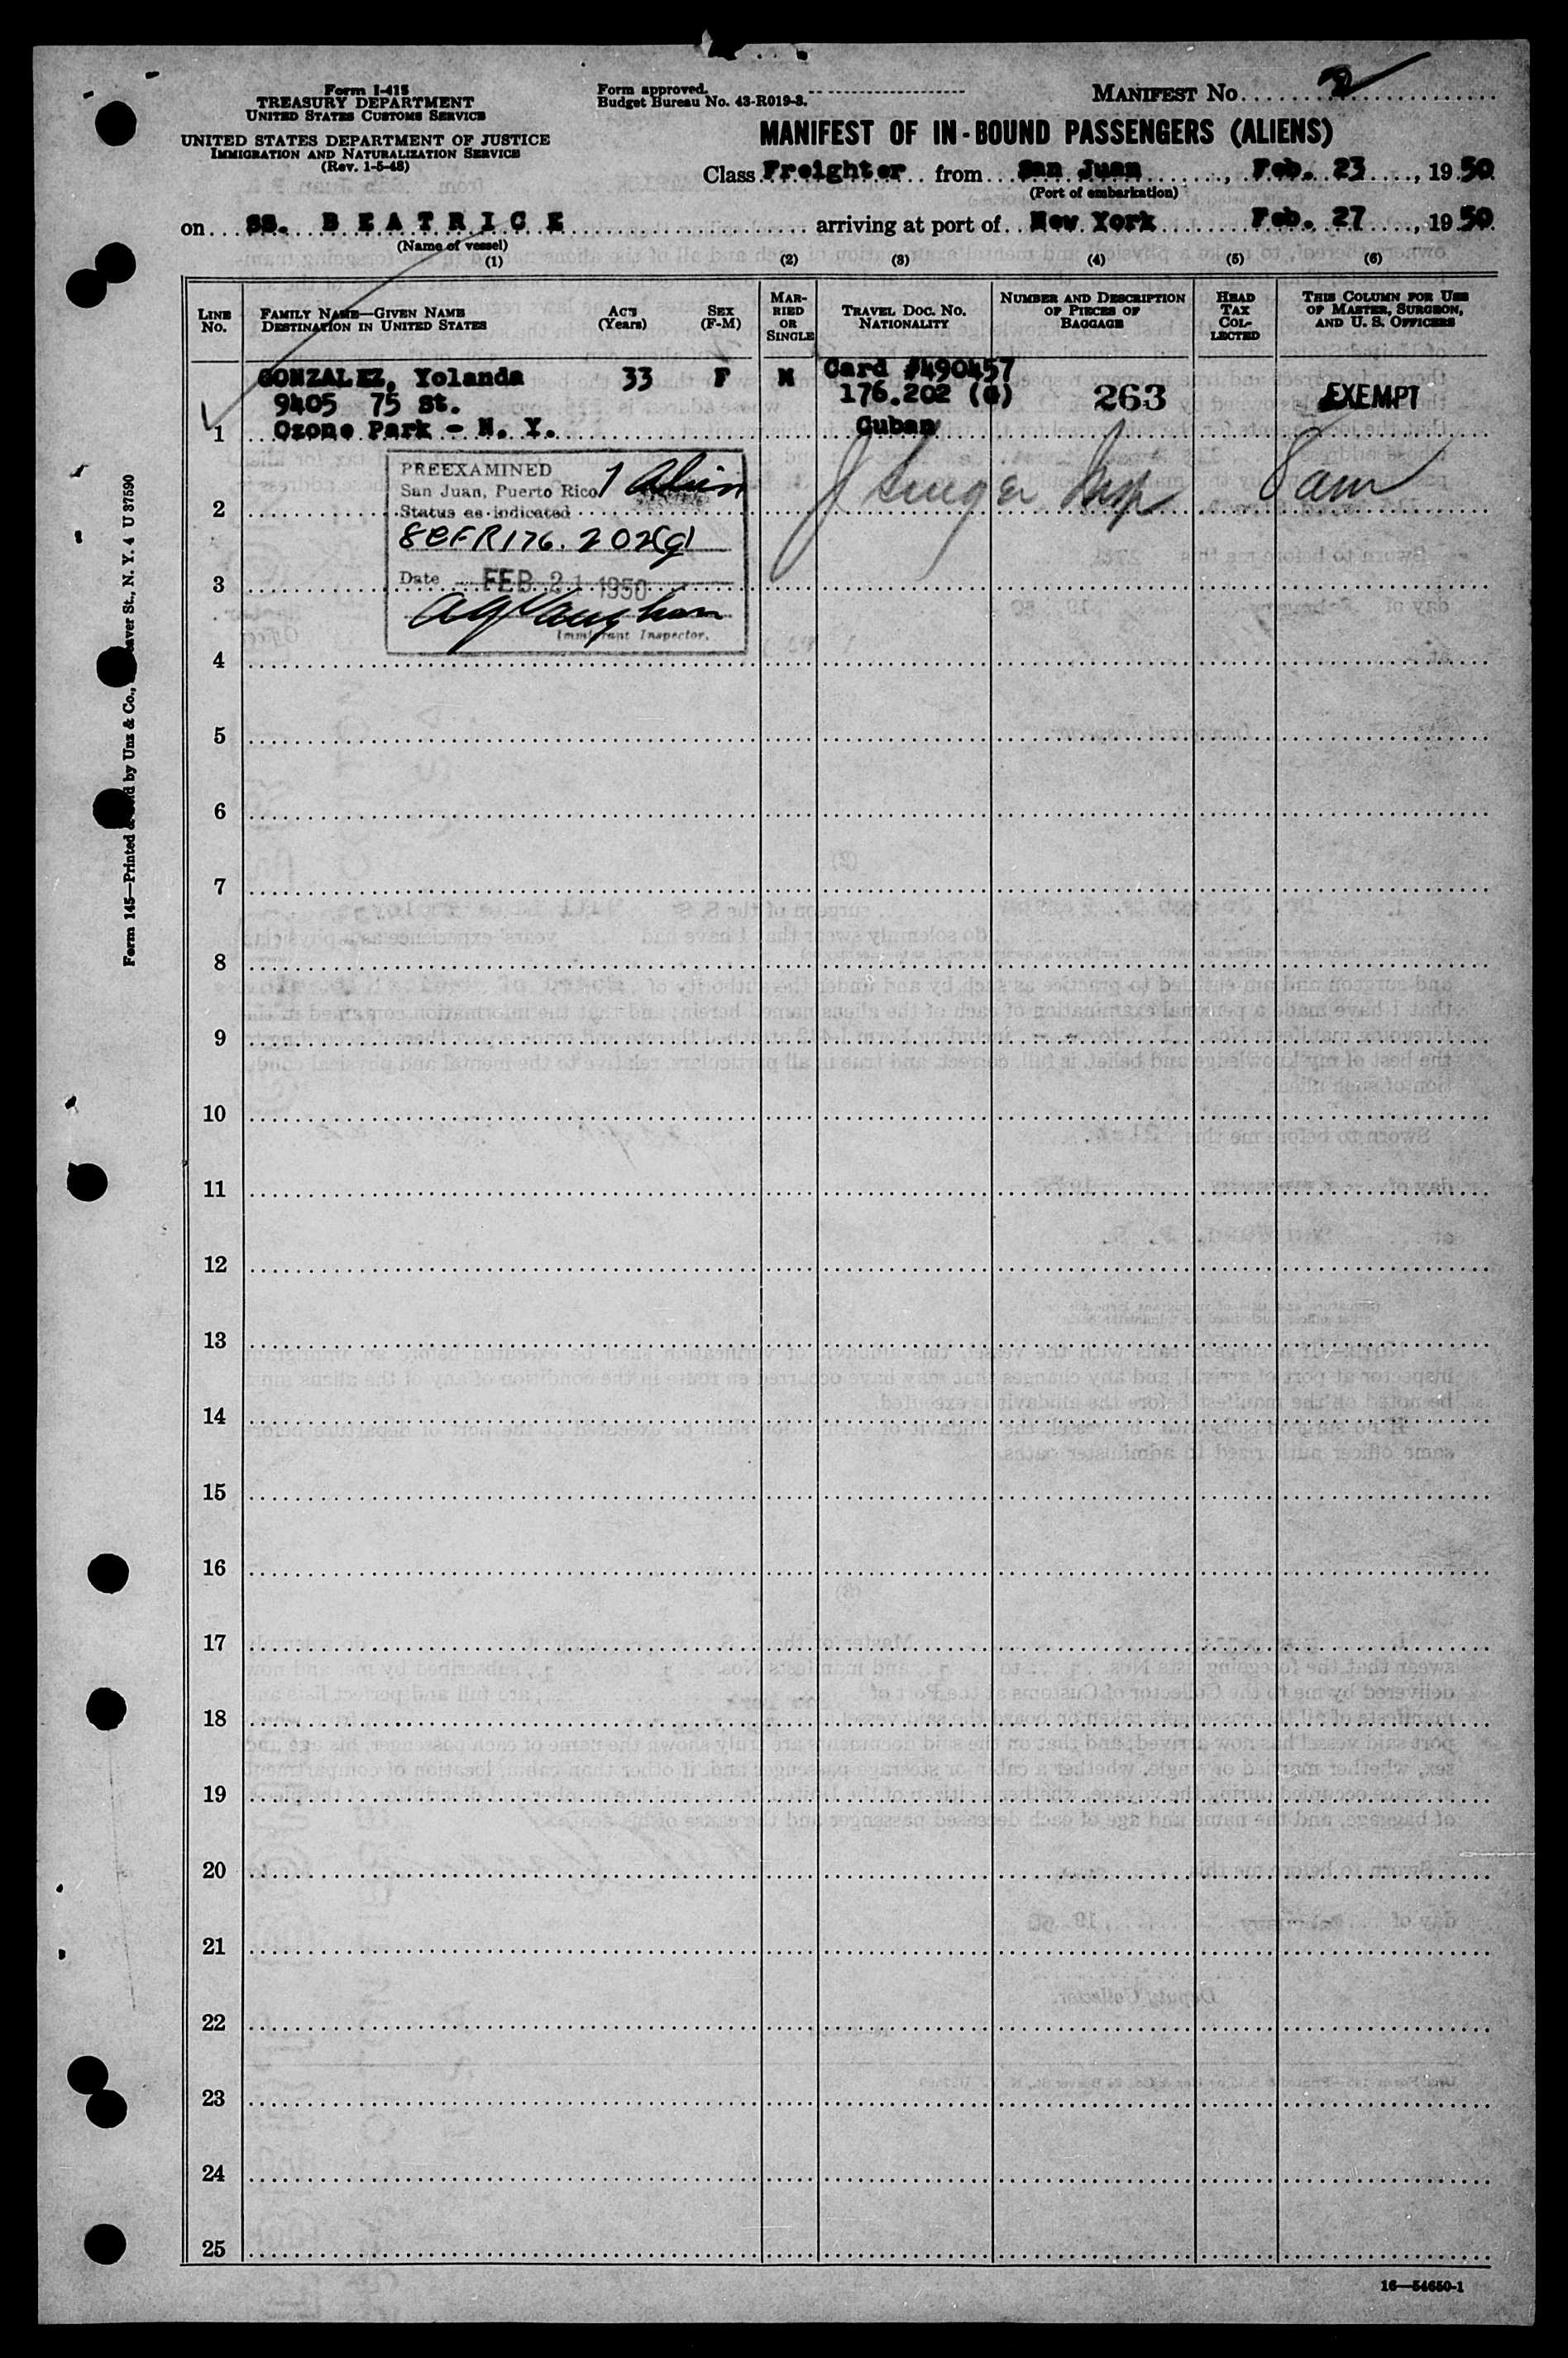 Form I-415
TREASURY DEPARTMENT
UNITED STATES CUSTOMS SERVICE
UNITED STATES DEPARTMENT OF JUSTICE
IMMIGRATION AND NATURALIZATION SERVICE
(Rev. 1-5-48)
Form approved.
Budget Bureau No. 43-R019-3.
MANIFEST NO. 2
MANIFEST OF IN-BOUND PASSENGERS (ALIENS)
Class Freighter from San Juan, Feb. 23, 1950
(Port of embarkation)
on ss. BEATRICE arriving at port of New York Feb. 27, 1950
(Name of vessel)
(1) (2) (3) (4) (5) (6)
LINE NO.
FAMILY NAME—GIVEN NAME
DESTINATION IN UNITED STATES
AGE (Years)
SEX (F-M)
MARRIED OR SINGLE
TRAVEL DOC. NO.
NATIONALITY
NUMBER AND DESCRIPTION OF PIECES OF BAGGAGE
HEAD TAX COLLECTED
THIS COLUMN FOR USE OF MASTER, SURGEON, AND U. S. OFFICERS
GONZALEZ, Yolanda 33 F M Card #490457
9405 75 St. 176.202 (G) 263 EXEMPT
1 Ozone Park - N. Y. Cuban
PREEXAMINED
San Juan, Puerto Rico 1 Alien
Status as indicated
8CFR176.202(g)
Date FEB 21 1950
Immigrant Inspector.
J Singer Insp 8am
2
3
4
5
6
7
8
9
10
11
12
13
14
15
16
17
18
19
20
21
22
23
24
25
16—54650-1
Form 145—Printed by Unz & Co., St., N. Y. 4 U 37590